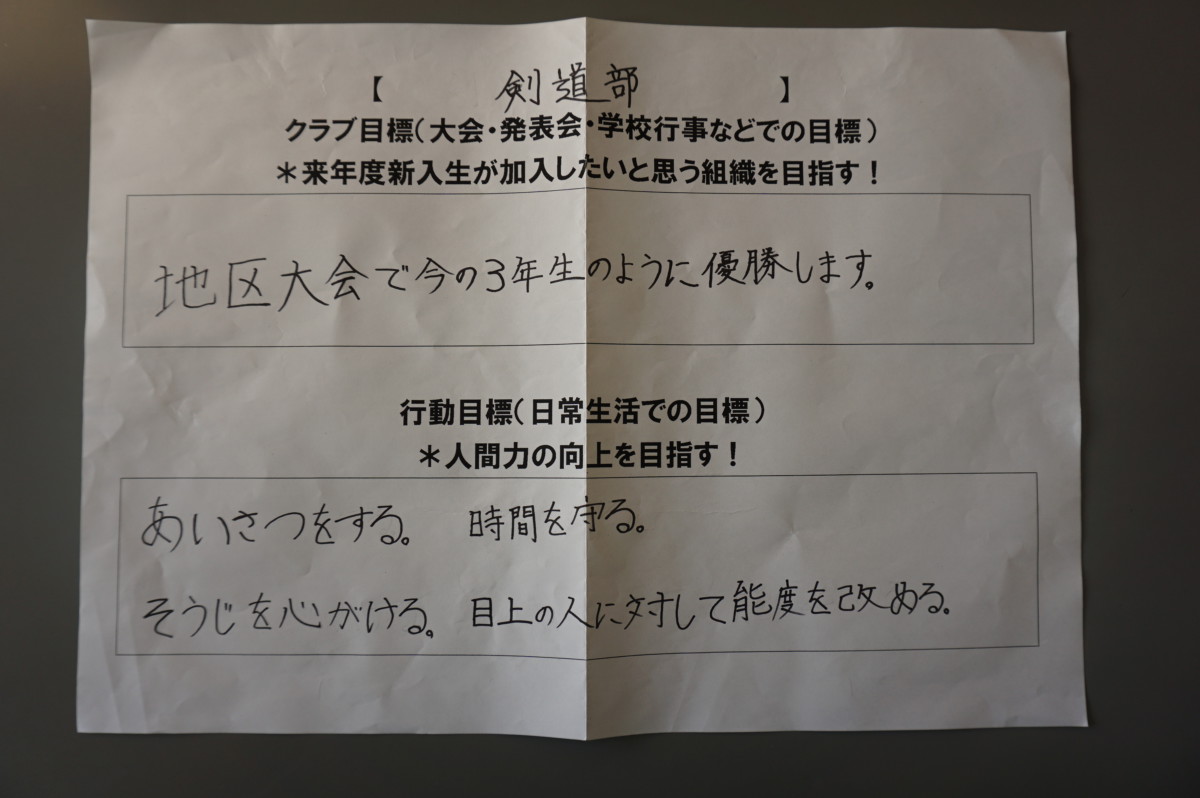 【 剣道部 】
クラブ目標(大会・発表会・学校行事などでの目標)
＊来年度新入生が加入したいと思う組織を目指す！
地区大会で今の3年生のように優勝します。
行動目標(日常生活での目標)
＊人間力の向上を目指す！
あいさつをする。 時間を守る。
そうじを心がける。 目上の人に対して能度を改める。